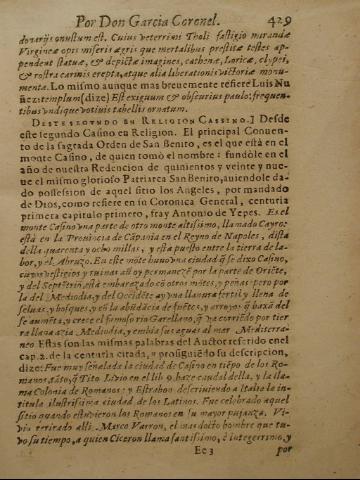 Por Don Garcia Coronel. 429
donarijs onustum est. Cuius veterrimi Tholi fastigio mirandæ
Virgineæ opis miseris ægris que mortalibus prestitæ testes ap-
pendent statuæ, & depictæ imagines, cathenæ, Loricæ, clypei,
& rostra carinis erepta, atque alia liberationis victoriæ monu-
menta. Lo mismo aunque mas breuemente refiere Luis Nu
ñez: templum (dize) Est exiguum & obscurius paulo: frequen-
tibus vndique votiuis tabellis ornatum.
DESTE SEGVNDO EN RELIGION CASSINO.] Desde
este segundo Casino en Religion. El principal Conuen-
to de la sagrada Orden de San Benito, es el que està en el
monte Casino, de quien tomò el nombre: fundòle en el
año de nuestra Redencion de quinientos y veinte y nue-
ue el mismo glorioso Patriarca San Benito, auiendole da-
do possession de aquel sitio los Angeles, por mandado
de Dios, como refiere en su Coronica General, centuria
primera capitulo primero, fray Antonio de Yepes. Es el
monte Casino vna parte de otro monte altissimo, llamado Cayro:
està en la Prouincia de Cãpania en el Reyno de Napoles, dista
della quarenta y ocho millas, y està puesto entre la tierra de la-
bor, y el Abruzo. En este mõte huuo vna ciudad q̃ se dixo Casino,
cuyos vestigios y ruinas aũ oy permanecẽ por la parte de Oriẽte,
y del Septẽtriõ està embarazado cõ otros mõtes, y peñas: pero por
la del Mediodia, y del Occidẽte ay vna llanura fertil y llena de
seluas, y bosques, y en la abũdãcia de fuẽtes, y arroyos q̃ baxã del
se aumẽta, y crece el famoso rio Garellano, q̃ va corriẽdo por tier
ra llana àzia Mediodia, y embia sus aguas al mar Mediterra-
neo. Estas son las mismas palabras del Auctor referido en el
cap. 2. de la centuria citada, y prosiguiẽdo su descripcion,
dize: Fue muy señalada la ciudad de Casino en tiẽpo de los Ro-
manos, tãto, q̃ Tito Liuio en el lib. 9. haze caudal della, y la lla-
ma Colonia de Romanos: y Estrabon descriuiendo a Italia la in-
titula ilustrissima ciudad de los Latinos. Fue celebrado aquel
sitio quando estuuieron los Romanos en su mayor pujança. Vi-
via retirado alli, Marco Varron, el mas docto hombre que tu-
uo su tiempo, a quien Ciceron llama santissimo, è integerrimo, y
Ee 3 por